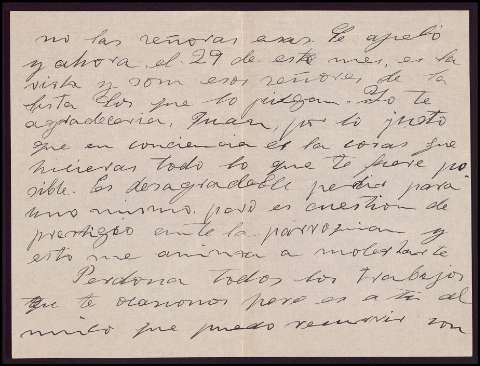 no las señoras esas. Se apeló
y ahora, el 29 de este mes, es la
vista y son esos señores de la
lista los que lo juzgan. Yo te
agradecería, Juan, por lo justo
que en conciencia es la cosa, que
hicieras todo lo que te fuere po
sible. Es desagradable pedir para
uno mismo, pero es cuestion de
prestigio ante la parroquia y
esto me anima a molestarte
Perdona todos los trabajos
que te ocasionos pero es a ti al
unico que puedo recurrir con